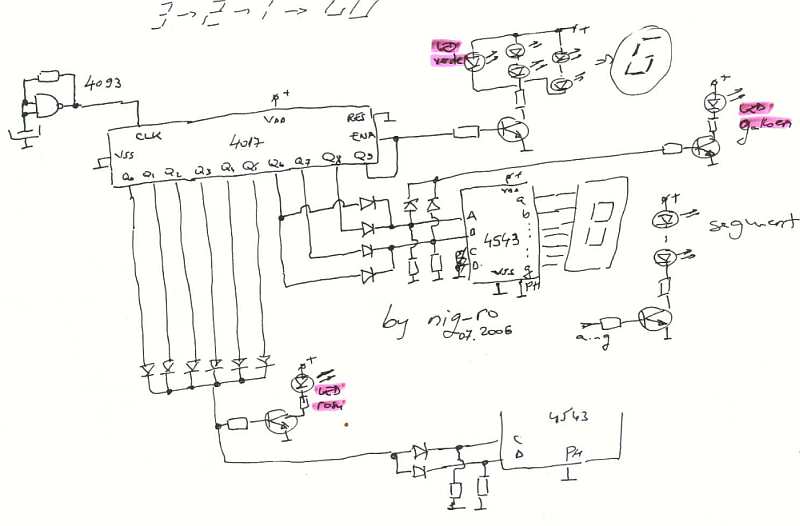 3 → 2 → 1 → GO
4093
LED
verde
+
+
+
CLK
VDD
RES
ENA
4017
VSS
Q0 Q1 Q2 Q3 Q4 Q5 Q6 Q7 Q8 Q9
LED
galben
+
VDD
A
B
C
D
4543
VSS
PH
a
b
g
+
segment
a..g
by nig-ro
07.2006
+
LED
rosu
4543
C
D
PH